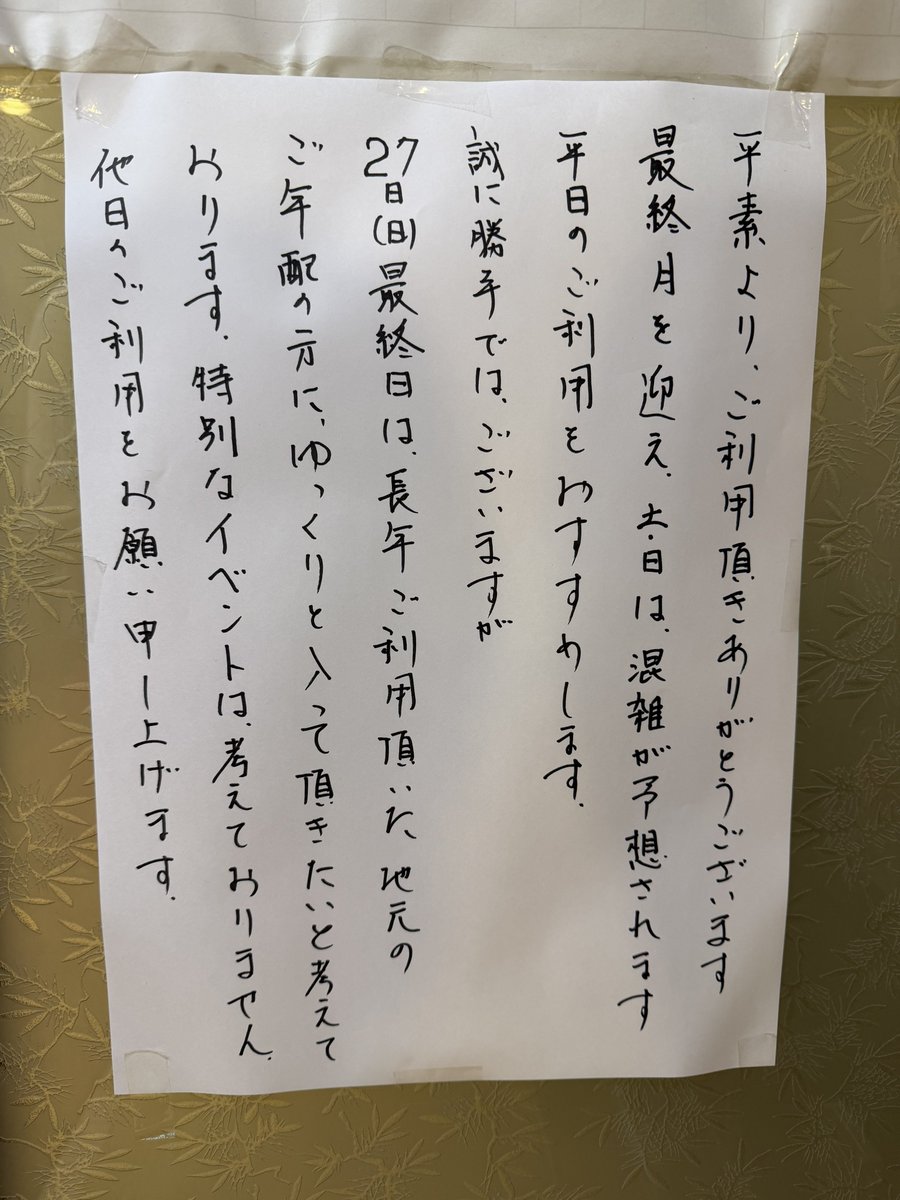 平素より、ご利用頂きありがとうございます
最終月を迎え、土・日は、混雑が予想されます
平日のご利用をおすすめします。
誠に勝手では、ございますが
27日(日)最終日は、長年ご利用頂いた地元の
ご年配の方に、ゆっくりと入って頂きたいと考えて
おります。特別なイベントは、考えておりません。
他日のご利用をお願い申し上げます。